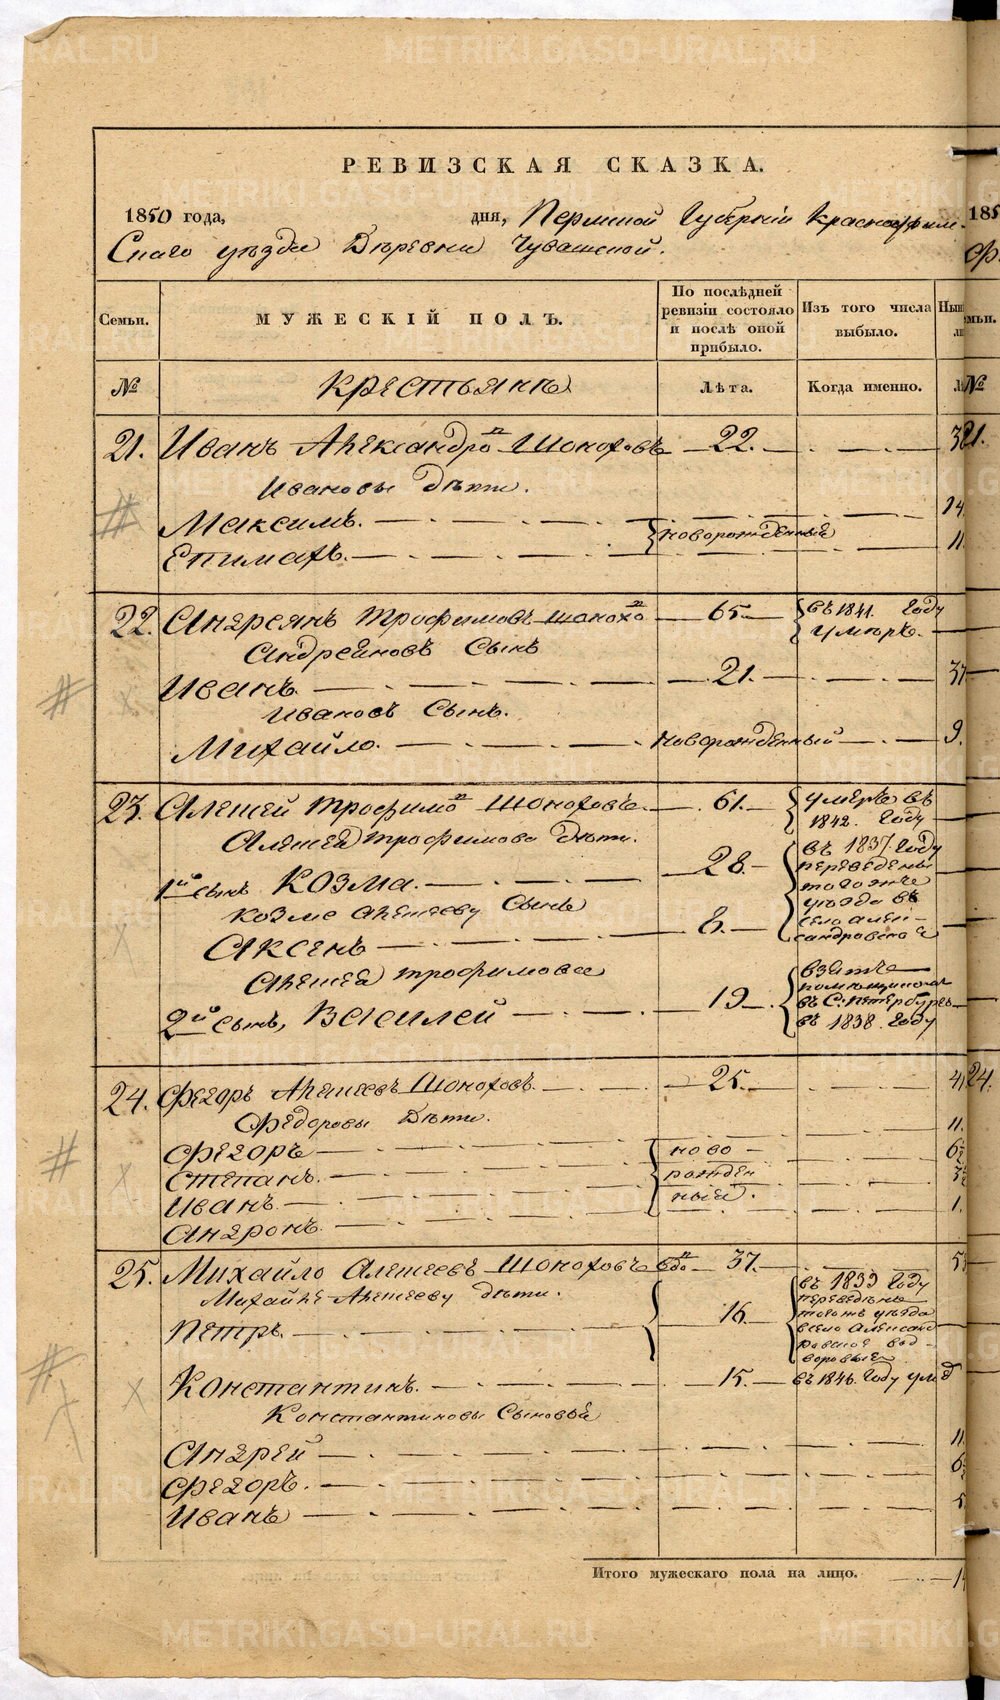 РЕВИЗСКАЯ СКАЗКА.
1850 года, дня, Пермской Губернiи Красноуфим-
скаго уѣзда Деревни Чувашской.
Семьи.
МУЖЕСКIЙ ПОЛЪ.
По послѣдней ревизiи состояло и послѣ оной прибыло.
Изъ того числа выбыло.
№
Крестьянѣ
Лѣта.
Когда именно.
21. Иванъ Александро Шоноховъ 22.
Ивановы дѣти.
Максимъ. 14.
новорожденныя
Епимахъ. 11.
22. Андреянъ Трофимовъ Шонохо 65. въ 1841. Году
умѣръ.
Андреяновъ Сынъ
Иванъ. 21. 37
Ивановъ Сынъ.
Михайло. Новорожденный 9.
23. Алексей Трофимо Шоноховъ. 61. умеръ въ
1842. Году
Алексея Трофимова дѣти.
1й сынъ Козма. 28. въ 1837. Году
переведены
тогоже
уѣзда въ
село Алек-
сандровское
Козме Алексееву Сынъ
Аксенъ 8.
Алексея Трофимова
2й сынъ, Василей 19. взятъ
помѣщикомъ
въ С. Петербургъ
въ 1838. Году
24. Федоръ Алексеевъ Шоноховъ. 25. 41
Федоровы Дѣти.
Федоръ 11.
ново-
рожден
ныя.
Степанъ.
Иванъ.
Андронъ. 1.
25. Михайло Алексеевъ Шоноховъ 37. 53
Михайле Алексееву дѣти.
Петръ. 16. въ 1839 Году
переведенъ
тогожъ уѣзда
всело Александ
ровское вод-
воровые
Константинъ. 15. въ 1846. Году
Константиновы Сыновья
Андрей 11.
Федоръ.
Иванъ
Итого мужескаго пола на лицо.
METRIKI.GASO-URAL.RU